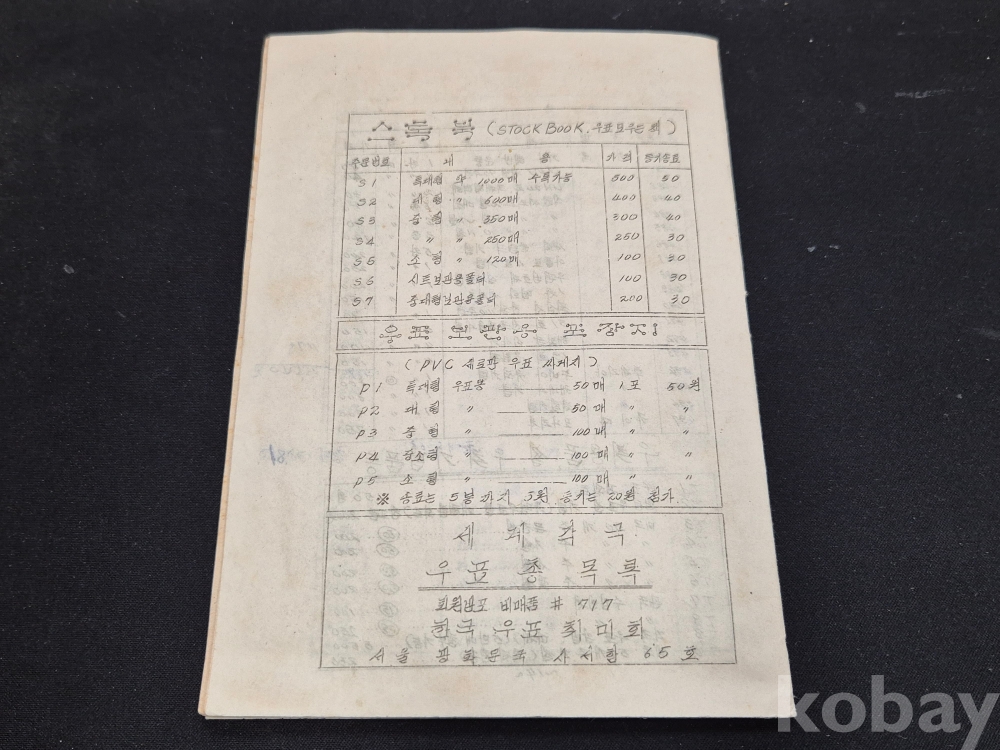 스톡 북 (STOCK BOOK. 우표 모우는 책)
주문번호 내 용 가격 등기송료
S1 특대형 약 1000매 수록가능 500 50
S2 대형 〃 600매 400 40
S3 중형 〃 350매 300 40
S4 〃 〃 250매 250 30
S5 소형 〃 120매 100 30
S6 시트보관용폴더 100 30
S7 중대형보관용폴더 200 30
우표 보관용 포장지
(PVC 세로판 우표 싸게지)
P1 특대형 우표용 50매 1포 50원
P2 대형 〃 50매 〃 〃
P3 중형 〃 100매 〃 〃
P4 중소형 〃 100매 〃 〃
P5 소형 〃 100매 〃 〃
※ 송료는 5봉 까지 5원 등기는 20원 첨가
세계각국
우표총목록
회원반포 비매품 #717
한국 우표 취미회
서울 광화문국 사서함 65호
kobay